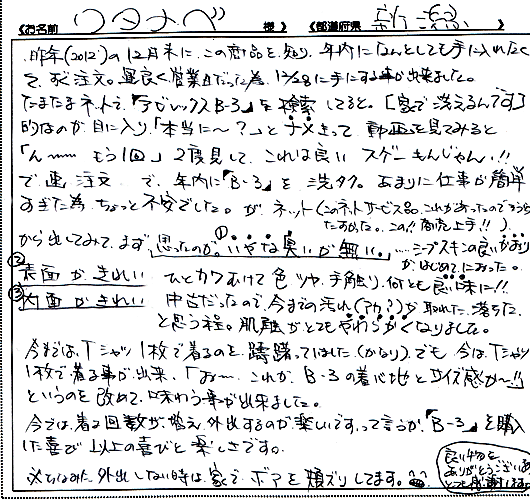 《お名前 ワタナベ 様》 《都道府県 新潟
昨年(2012)の12月末に、この商品を知り、年内になんとしても手に入れたく
て、即注文。運良く営業日だった為、12/28に手にする事が出来ました。
たまたまネットで、「今でしックスB-3」を検索してると。[家で洗えるんです]
的なのが目に入り、「本当に〜?」とナメきって動画を見てみると
「ん〜〜 もう1回」2度見して、これは良い スゲーもんじゃん!!
で速注文 で、年内に「B-3」を洗タク。あまりに仕事が簡単
すぎた為、ちょっと不安でした。が、ネット(このネットサービス品、これがあったのでうらう
たすかった。この!!商売上手!!)
から出してみて、まず思ったのが、①いやな臭いが無い。……シープスキンの良いかおり
がはじめてにおった。
②表面がきれい ひとカワあけて色ツヤ、手触り、何とも良い味に!!
③内面がきれい 中古だったので、今までの汚れ(アカ?)が取れた、落ちた
と思う程。肌触がとてもやわらかくなりました。
今までは、Tシャツ1枚で着るのを躊躇っていました(かなり)。でも今は、Tシャツ
1枚で着る事が出来、「お〜、これが、B-3の着心地とサイズ感か〜!!」
というのを改めて、味わう事が出来ました。
今では、着る回数が増え、外出するのが楽しいです、って言うか、「B-3」を購入
した喜び以上の喜びと楽しさです。
※ちなみに外出しない時は、家でボアを頬ズリしてます。
良い物を
ありがとうございました
とっても感謝